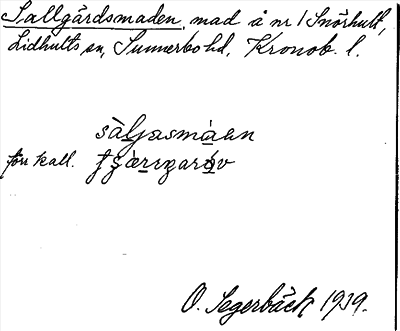 Sallgårdsmaden, mad å nr 1 Snörhult,
Lidhults sn, Sunnerbo hd, Kronob. l.
sàljasmàen
förr kall.
O. Segerbäck 1919.